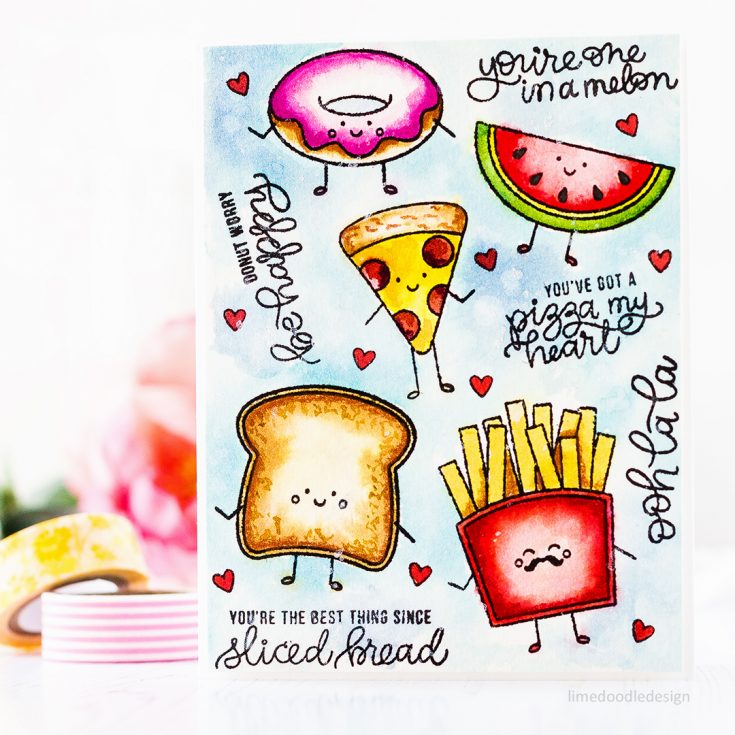 you're one
in a melon
DONUT WORRY
be happy
YOU'VE GOT A
pizza my
heart
ooh la la
YOU'RE THE BEST THING SINCE
sliced bread
limedoodledesign